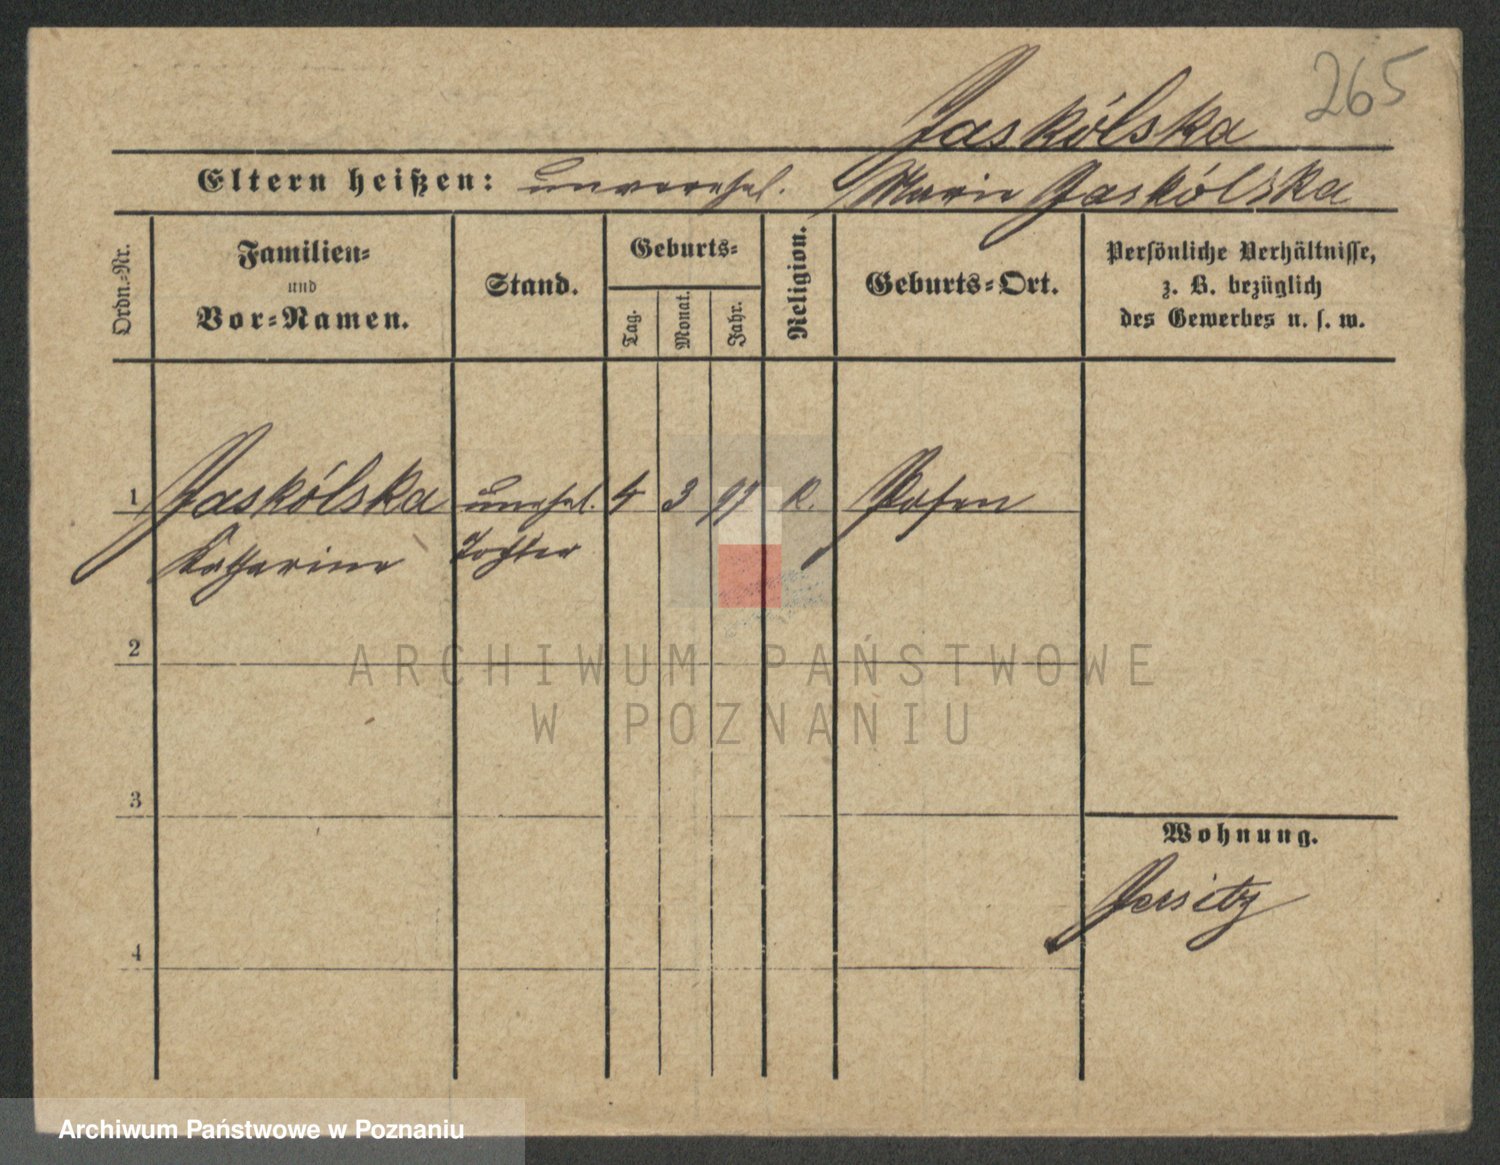 265
Jaskólska
Eltern heißen: unverehel. Marie Jaskólska
Ordn.-Nr.
Familien-
und
Vor-Namen.
Stand.
Geburts-
Tag.
Monat.
Jahr.
Religion.
Geburts-Ort.
Persönliche Verhältnisse,
z. B. bezüglich
des Gewerbes u. s. w.
1 Jaskólska unehel. 4 3 97 K. Posen
Katharina Tochter
2
ARCHIWUM PAŃSTWOWE
W POZNANIU
3
Wohnung.
Jersitz
4
Archiwum Państwowe w Poznaniu